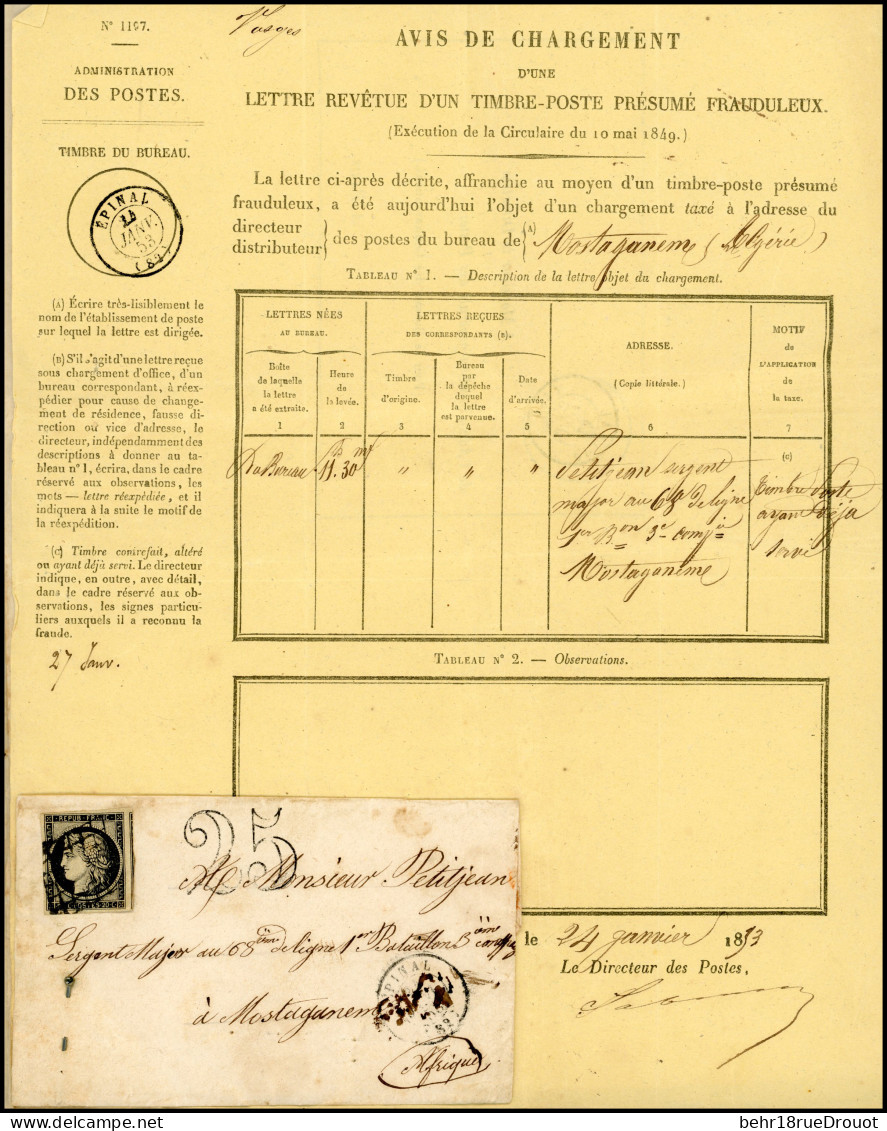 N° 1197.
ADMINISTRATION
DES POSTES.
TIMBRE DU BUREAU.
ÉPINAL
JANV.
53
(82)
(A) Écrire très-lisiblement le
nom de l'établissement de poste
sur lequel la lettre est dirigée.
(B) S'il s'agit d'une lettre reçue
sous chargement d'office, d'un
bureau correspondant, à réex-
pédier pour cause de change-
ment de résidence, fausse di-
rection ou vice d'adresse, le
directeur, indépendamment des
descriptions à donner au ta-
bleau n° 1, écrira, dans le cadre
réservé aux observations, les
mots — lettre réexpédiée, et il
indiquera à la suite le motif de
la réexpédition.
(C) Timbre contrefait, altéré
ou ayant déjà servi. Le directeur
indique, en outre, avec détail,
dans le cadre réservé aux ob-
servations, les signes particu-
liers auxquels il a reconnu la
fraude.
27 Janv.
Vosges
AVIS DE CHARGEMENT
D'UNE
LETTRE REVÊTUE D'UN TIMBRE-POSTE PRÉSUMÉ FRAUDULEUX.
(Exécution de la Circulaire du 10 mai 1849.)
La lettre ci-après décrite, affranchie au moyen d'un timbre-poste présumé
frauduleux, a été aujourd'hui l'objet d'un chargement taxé à l'adresse du
directeur
distributeur } des postes du bureau de (A) Mostaganem (Algérie)
TABLEAU N° 1. — Description de la lettre objet du chargement.
LETTRES NÉES
AU BUREAU.
LETTRES REÇUES
DES CORRESPONDANTS (B).
ADRESSE.
(Copie littérale.)
6
MOTIF
de
L'APPLICATION
de
la taxe.
7
Boîte
de laquelle
la lettre
a été extraite.
1
Heure
de
la levée.
2
Timbre
d'origine.
3
Bureau
par
la dépêche
duquel
la lettre
est parvenue.
4
Date
d'arrivée.
5
Du Bureau
11h 30m
"
"
"
Petitjean sergent
major au 68 de ligne
1er Bon 3e compie
Mostaganeme
(C)
timbre poste
ayant déja
servi
TABLEAU N° 2. — Observations.
le 24 janvier 1853
Le Directeur des Postes,
REPUB FRANC
20 C
25
A Monsieur Petitjean
Sergent Major au 68ème de ligne 1er Bataillon 3ème
à Mostaganem
Afrique
EPINAL
behr18rueDrouot